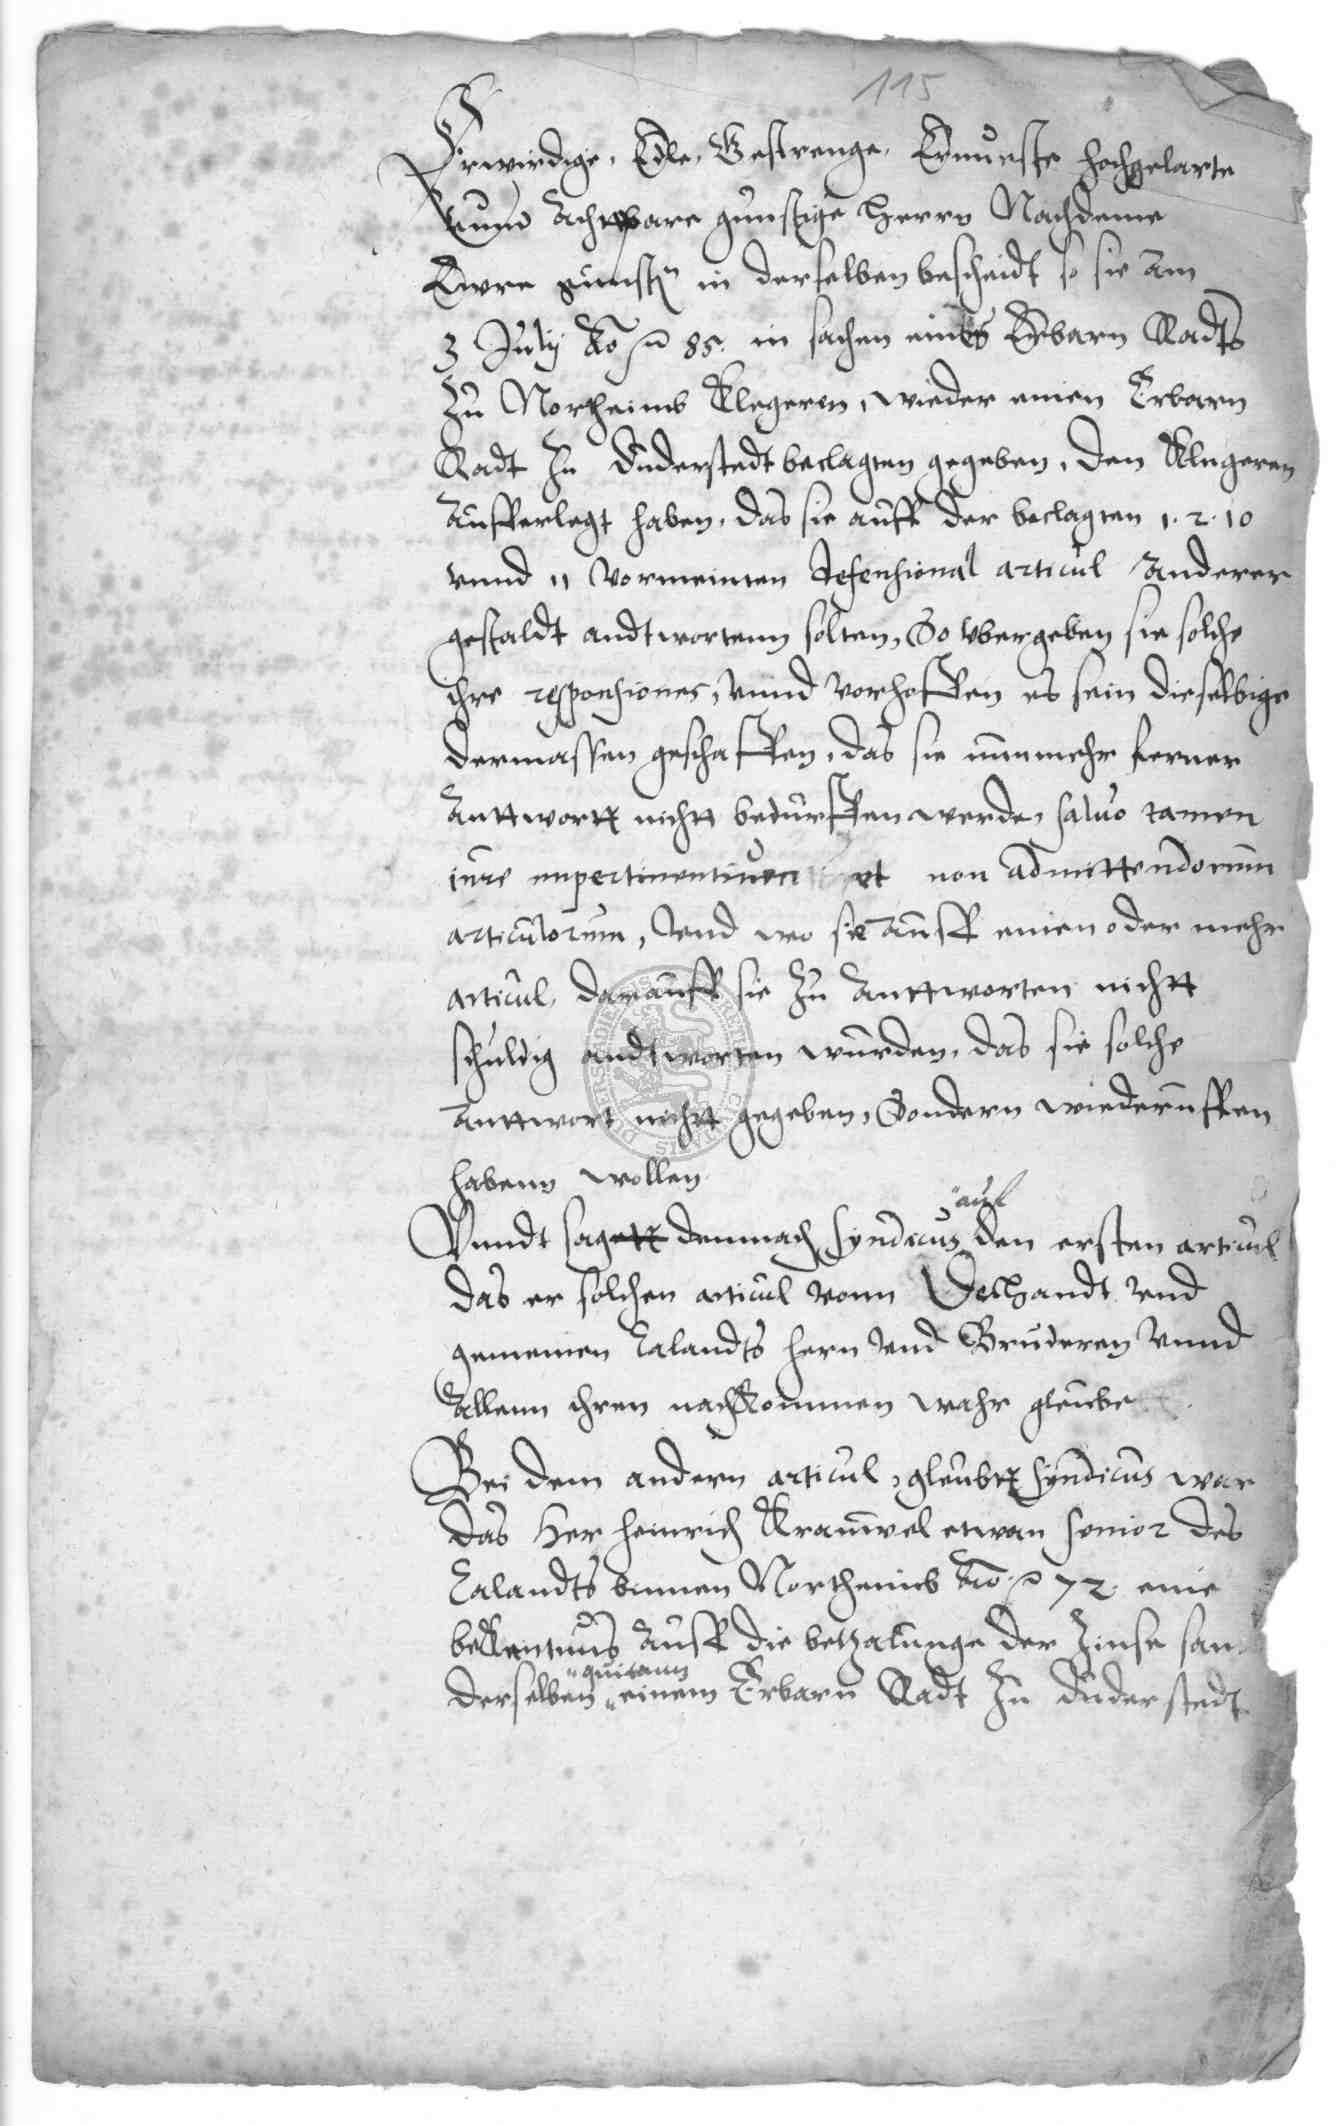 115
Erwirdige, Edle, Gestrenge, Ernueste hochgelarte
Vnnd Achtbare gunstige Herrn Nachdeme
Ewre gunst in derselben bescheidt so sie Am
3 July Ao 85. in sachen eines Erbarn Radts
Zu Northeimb Klegeren, wieder einen Erbarn
Radt Zu Duderstedt beclagten gegeben, den Klegeren
Aufferlegt haben, das sie auff der beclagten 1. 2. 10
vnnd 11 vormeinten defensional articul Anderer
gestaldt andtwortenn solten, So vbergeben sie solche
ihre responsiones, vnnd vorhoffen es sein dieselbige
dermassen geschaffen, das sie nunmehr ferner
Anttwortt nichtt bedurffen werde, saluo tamen
iure impertinentium et non admittendorum
articulorum, Vnd wo sie Auff einen oder mehr
articul, darauff sie Zu Anttworten nichtt
schuldig andtworten wurden, das sie solche
Anttwort nichtt gegeben, Sondern wiederuffen
habenn wollen
Vnndt sagett demnach Syndicus auf den ersten articul
das er solchen articul vonn Dechandt vnd
gemeinen Calandts hern vnd Bruderen vnnd
Allenn ihren nachkommen wahr gleube
Bei dem andern articul, gleubtt Syndicus war
das Her Heinrich Kramvel etwan senior des
Calandts binnen Northeimb Ao 72. eine
bekentnus Auff die bezalunge der Zinse
derselben quitann einem Erbarn Radt Zu Duderstedt